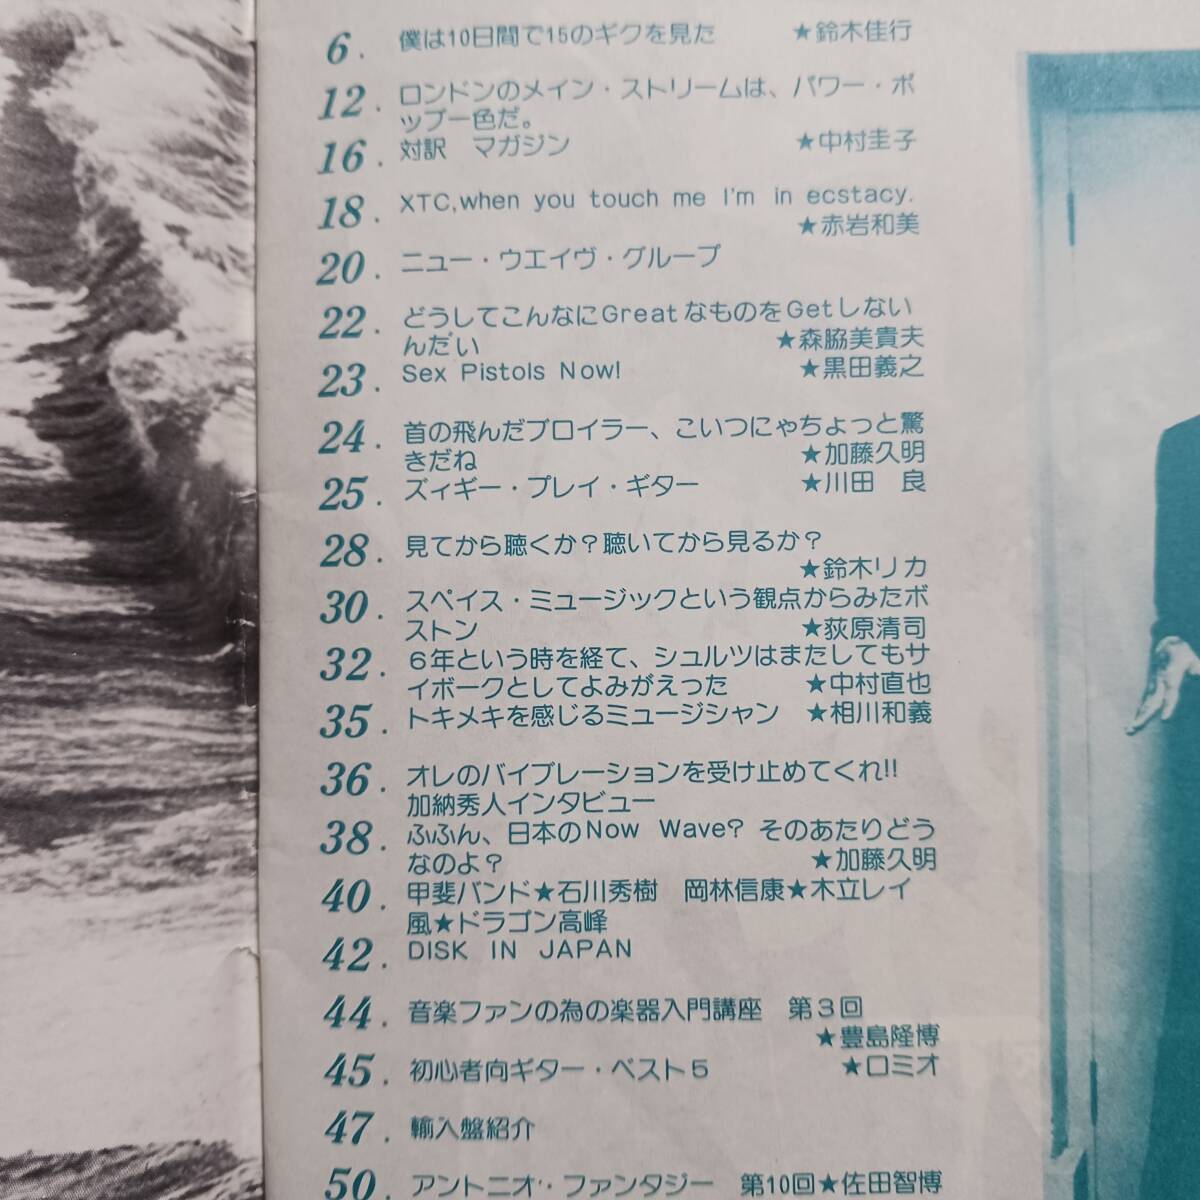 6. 僕は10日間で15のギグを見た ★鈴木佳行
12. ロンドンのメイン・ストリームは、パワー・ポ
ップ一色だ。
16. 対訳 マガジン ★中村圭子
18. XTC,when you touch me I'm in ecstacy.
★赤岩和美
20. ニュー・ウエイヴ・グループ
22. どうしてこんなにGreatなものをGetしない
んだい ★森脇美貴夫
23. Sex Pistols Now! ★黒田義之
24. 首の飛んだブロイラー、こいつにゃちょっと驚
きだね ★加藤久明
25. ズィギー・プレイ・ギター ★川田 良
28. 見てから聴くか?聴いてから見るか?
★鈴木リカ
30. スペイス・ミュージックという観点からみたボ
ストン ★荻原清司
32. 6年という時を経て、シュルツはまたしてもサ
イボークとしてよみがえった ★中村直也
35. トキメキを感じるミュージシャン ★相川和義
36. オレのバイブレーションを受け止めてくれ!!
加納秀人インタビュー
38. ふふん、日本のNow Wave? そのあたりどう
なのよ? ★加藤久明
40. 甲斐バンド★石川秀樹 岡林信康★木立レイ
風★ドラゴン高峰
42. DISK IN JAPAN
44. 音楽ファンの為の楽器入門講座 第3回
★豊島隆博
45. 初心者向ギター・ベスト5 ★ロミオ
47. 輸入盤紹介
50. アントニオ・ファンタジー 第10回★佐田智博